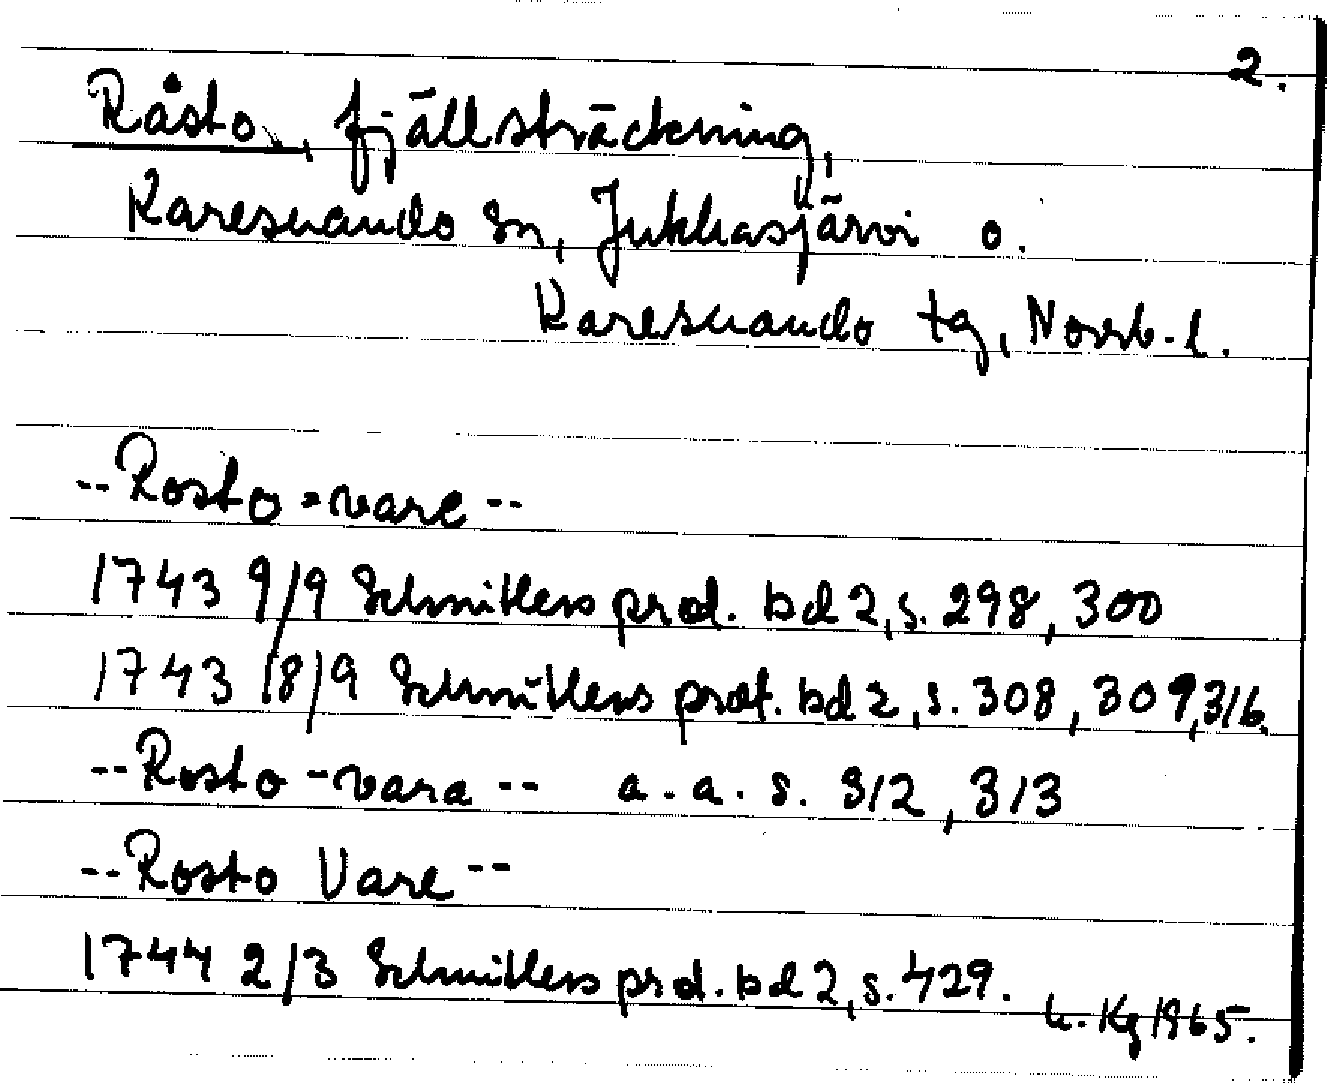 2.
Råsto, fjällsträckning,
Karesuando sn, Jukkasjärvi o.
Karesuando tg, Norrb. l.
--Rosto-vare--
1743 9/9 Schnitlers prot. bd 2, s. 298, 300
1743 18/9 Schnitlers prot. bd 2, s. 308, 309, 316.
--Rosto-vara-- a. a. s. 312, 313
--Rosto Vare--
1744 2/3 Schnitlers prot. bd 2, s. 429.
Kg 1965.